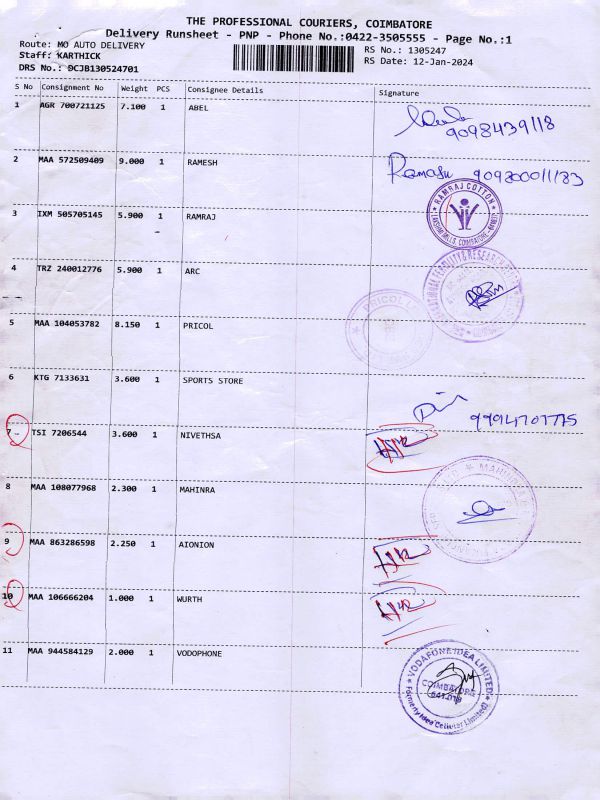 THE PROFESSIONAL COURIERS, COIMBATORE
Delivery Runsheet - PNP - Phone No.:0422-3505555 - Page No.:1
Route: MO AUTO DELIVERY RS No.: 1305247
Staff: KARTHICK RS Date: 12-Jan-2024
DRS No.: DCJB130524701
S No Consignment No Weight PCS Consignee Details Signature
1 AGR 700721125 7.100 1 ABEL
9098439118
2 MAA 572509409 9.000 1 RAMESH
Ramasu
3 IXM 505705145 5.900 1 RAMRAJ
RAMRAJ COTTON
4 TRZ 240012776 5.900 1 ARC
5 MAA 104053782 8.150 1 PRICOL
PRICOL
6 KTG 7133631 3.600 1 SPORTS STORE
7 TSI 7206544 3.600 1 NIVETHSA
8 MAA 108077968 2.300 1 MAHINRA
9 MAA 863286598 2.250 1 AIONION
10 MAA 106666204 1.000 1 WURTH
11 MAA 944584129 2.000 1 VODOPHONE
VODAFONE IDEA LIMITED
COIMBATORE
(Formerly Idea Cellular Limited)